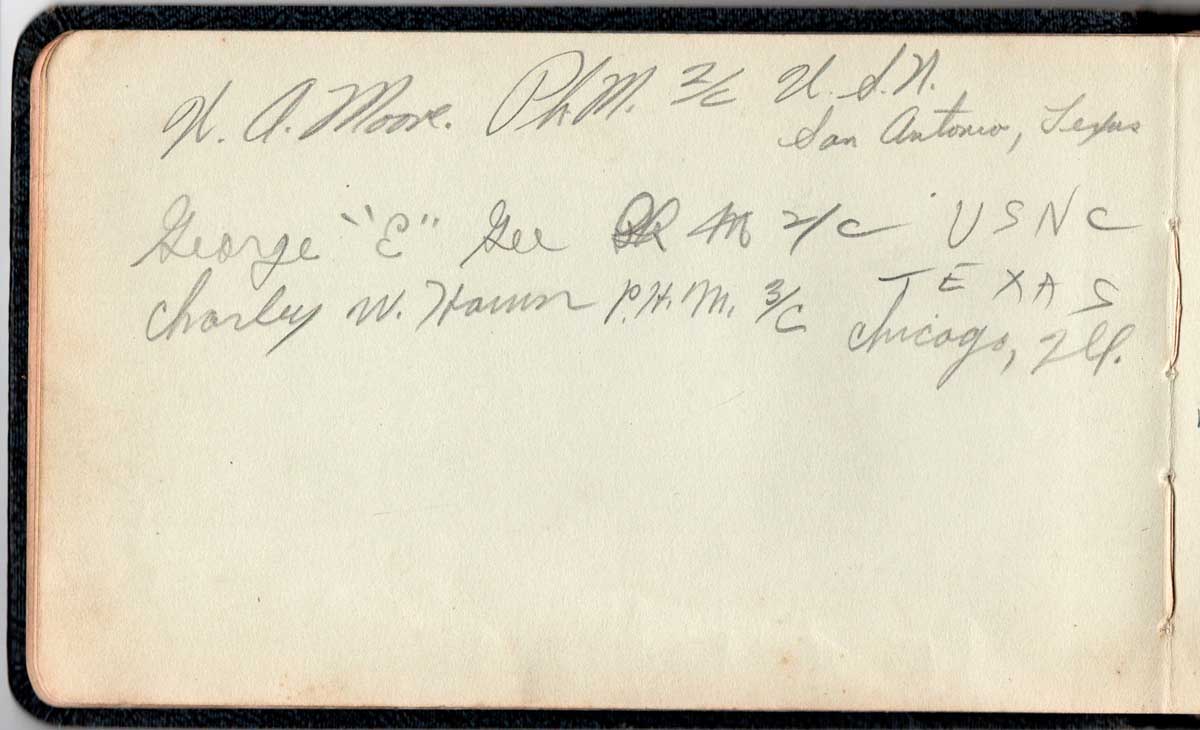 W. A. Moore. Ph.M. 2/c U.S.N.
San Antonio, Texas
George "E" Gee M 2/c USNC
TEXAS
Charley W. P.H.M. 3/c
Chicago, Ill.